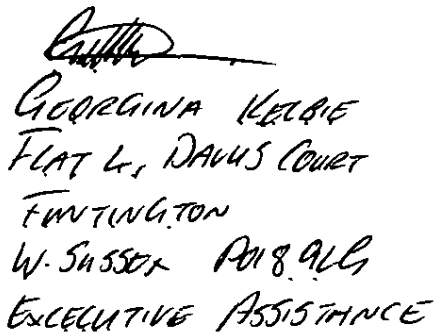 GEORGINA KELBIE
FLAT 4, DAVIS COURT
FUNTINGTON
W. SUSSEX PO18 9LG
EXCECUTIVE ASSISTANCE